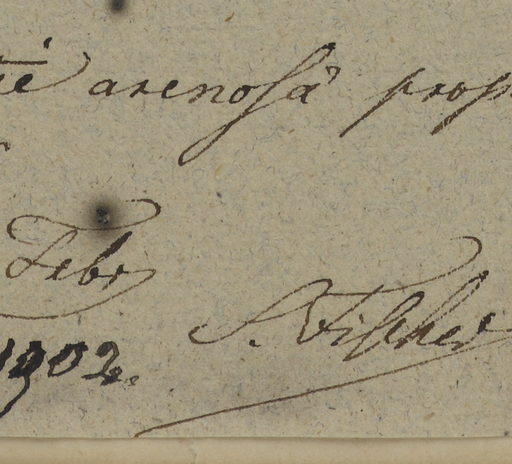 arenosâ prop
Febr
1902.
S. Fischer